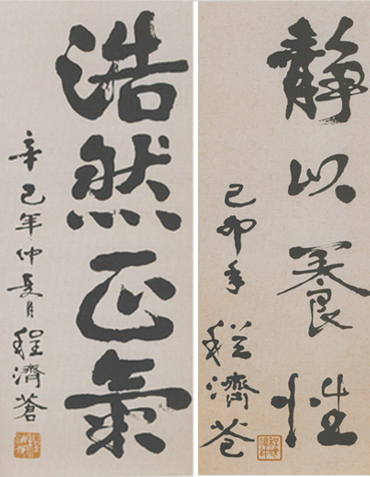 浩然正氣
辛巳年仲夏月程濟蒼
靜以養性
己卯年 程濟蒼